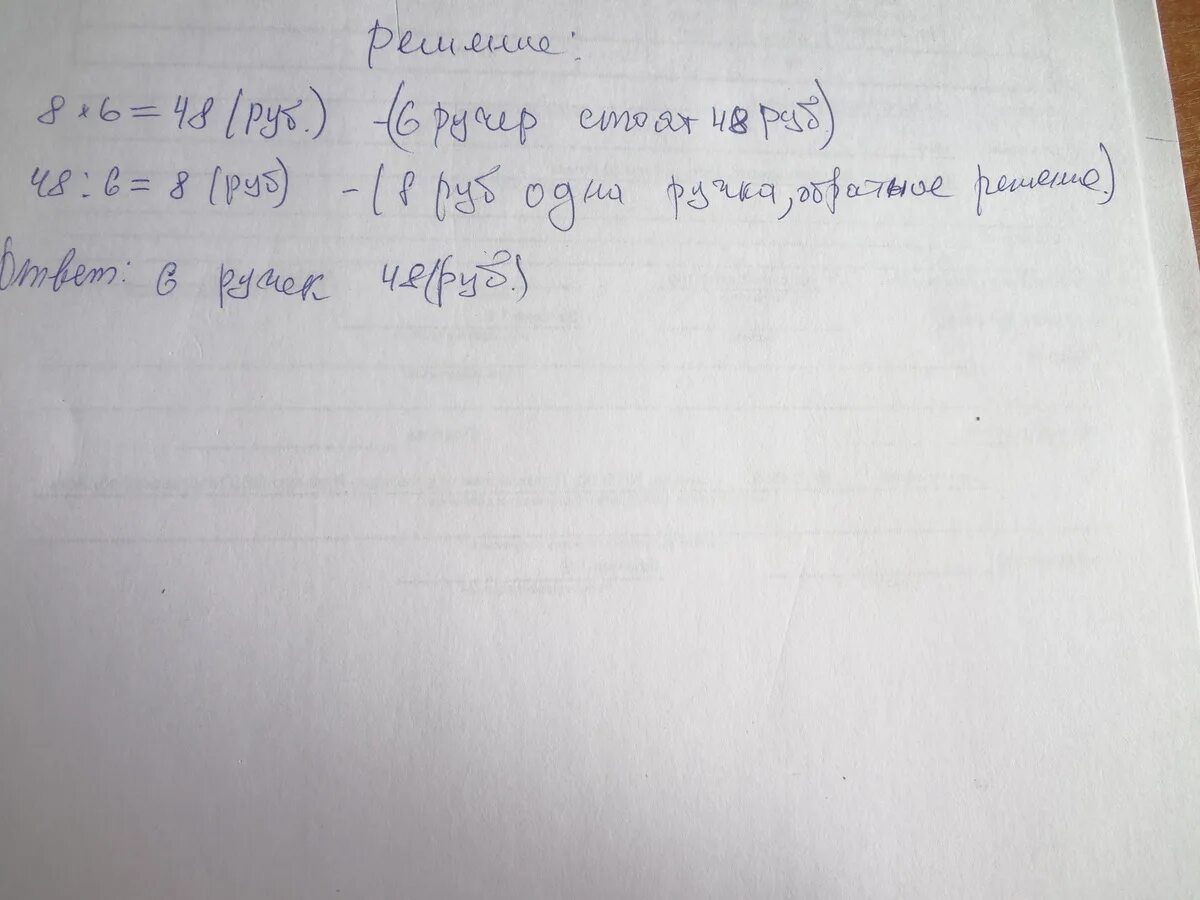 Решение:
8 × 6 = 48 (руб.) - (6 ручер стоят 48 руб)
48 : 6 = 8 (руб) - (8 руб одна ручка, обратное решение.)
Ответ: 6 ручек 48 (руб.)